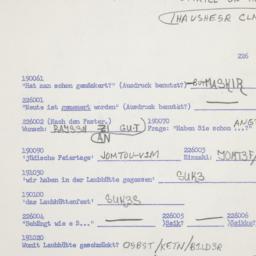 (HAUSHESR CLA
226
190061
"Hat man schon gemäskert?" (Ausdruck benutzt?) -BUTMASKIR
226001
"Heute ist gewesert worden" (Ausdruck benutzt?)
226002 (Nach dem Fasten.) 190070
Wunsch: BAJSSN ZI GUT Frage: "Haben Sie schon ...?" ANG
AN
190090 226003
'jüdische Feiertage' JOMTOU-VIM Einzahl: JOMT3F/
191030
'wir haben in der Laubhütte gegessen' SUK3
190100
'das Laubhüttenfest' SUK3S
226004 226005 226006
"Schlägt wie e D..." )Seik? )Seikes?
191020
Womit Laubhütte geschmückt? OBST/KETN/BILD3R